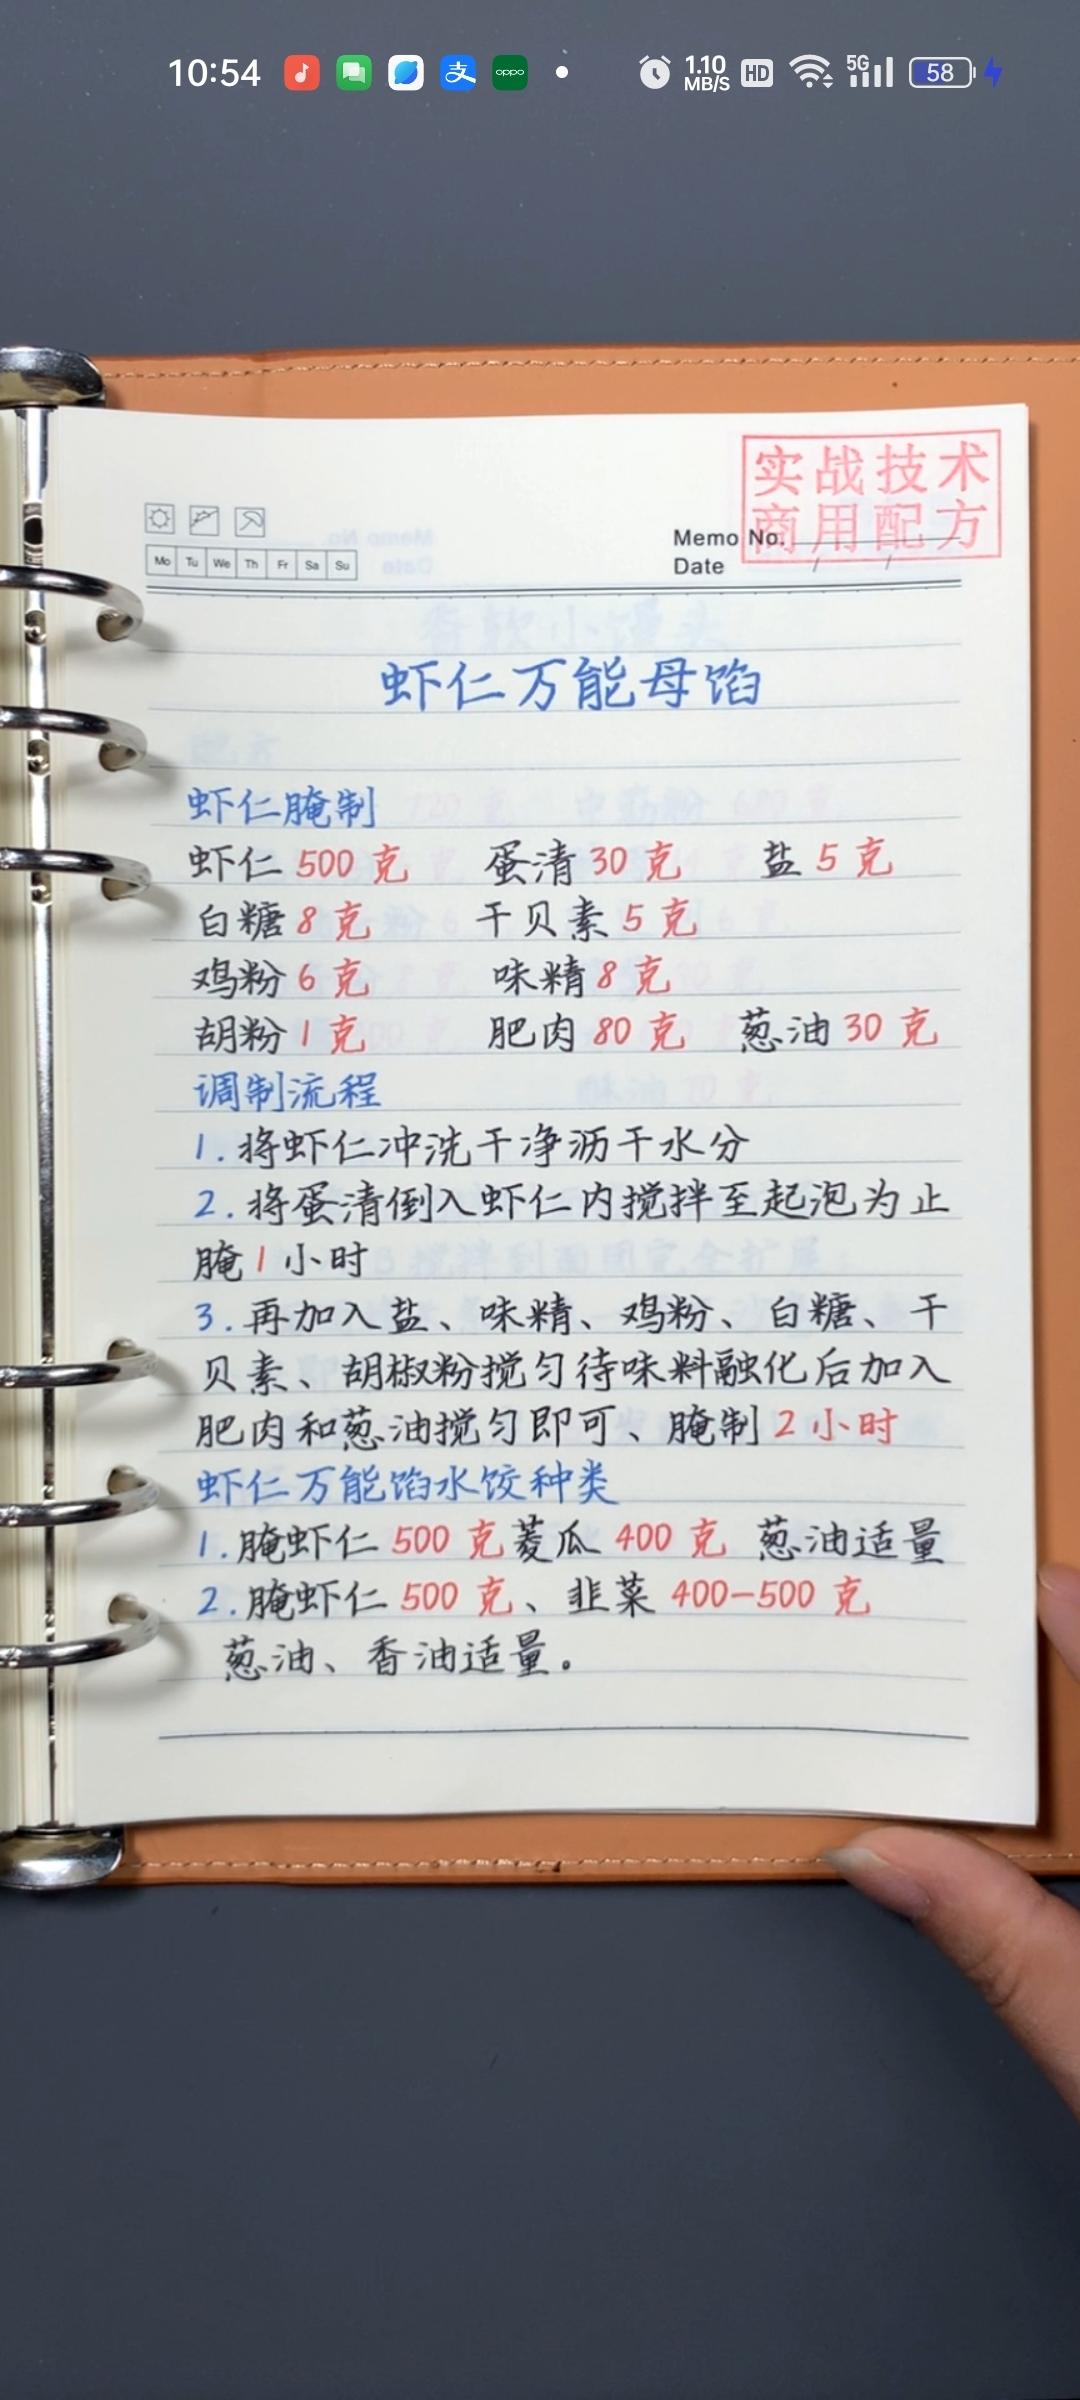 10:54
1.10
MB/S
HD
5G
58
支
oppo
实战技术
商用配方
Memo No.
Date / /
Mo Tu We Th Fr Sa Su
虾仁万能母馅
虾仁腌制
虾仁 500 克 蛋清 30 克 盐 5 克
白糖 8 克 干贝素 5 克
鸡粉 6 克 味精 8 克
胡粉 1 克 肥肉 80 克 葱油 30 克
调制流程
1. 将虾仁冲洗干净沥干水分
2. 将蛋清倒入虾仁内搅拌至起泡为止
腌 1 小时
3. 再加入盐、味精、鸡粉、白糖、干
贝素、胡椒粉搅匀待味料融化后加入
肥肉和葱油搅匀即可、腌制 2 小时
虾仁万能馅水饺种类
1. 腌虾仁 500 克菱瓜 400 克 葱油适量
2. 腌虾仁 500 克、韭菜 400-500 克
葱油、香油适量。